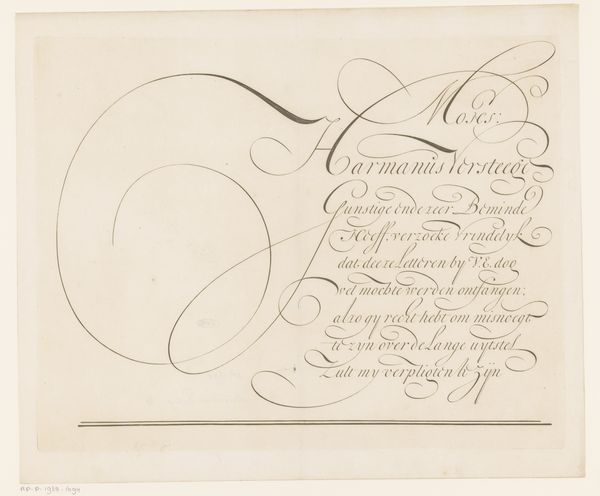 Moses:
Harmanus Versteege
Gunstige ende zeer Beminde
Hoeff: verzoeke Vrindelyk
dat deeze Letteren by V.E. doo
wel mochte werden ontfangen;
alzo gy recht hebt om misnoegt
te zyn over de Lange uytstel
Zult my verpligten te Zÿn
RP-P-1918-1694